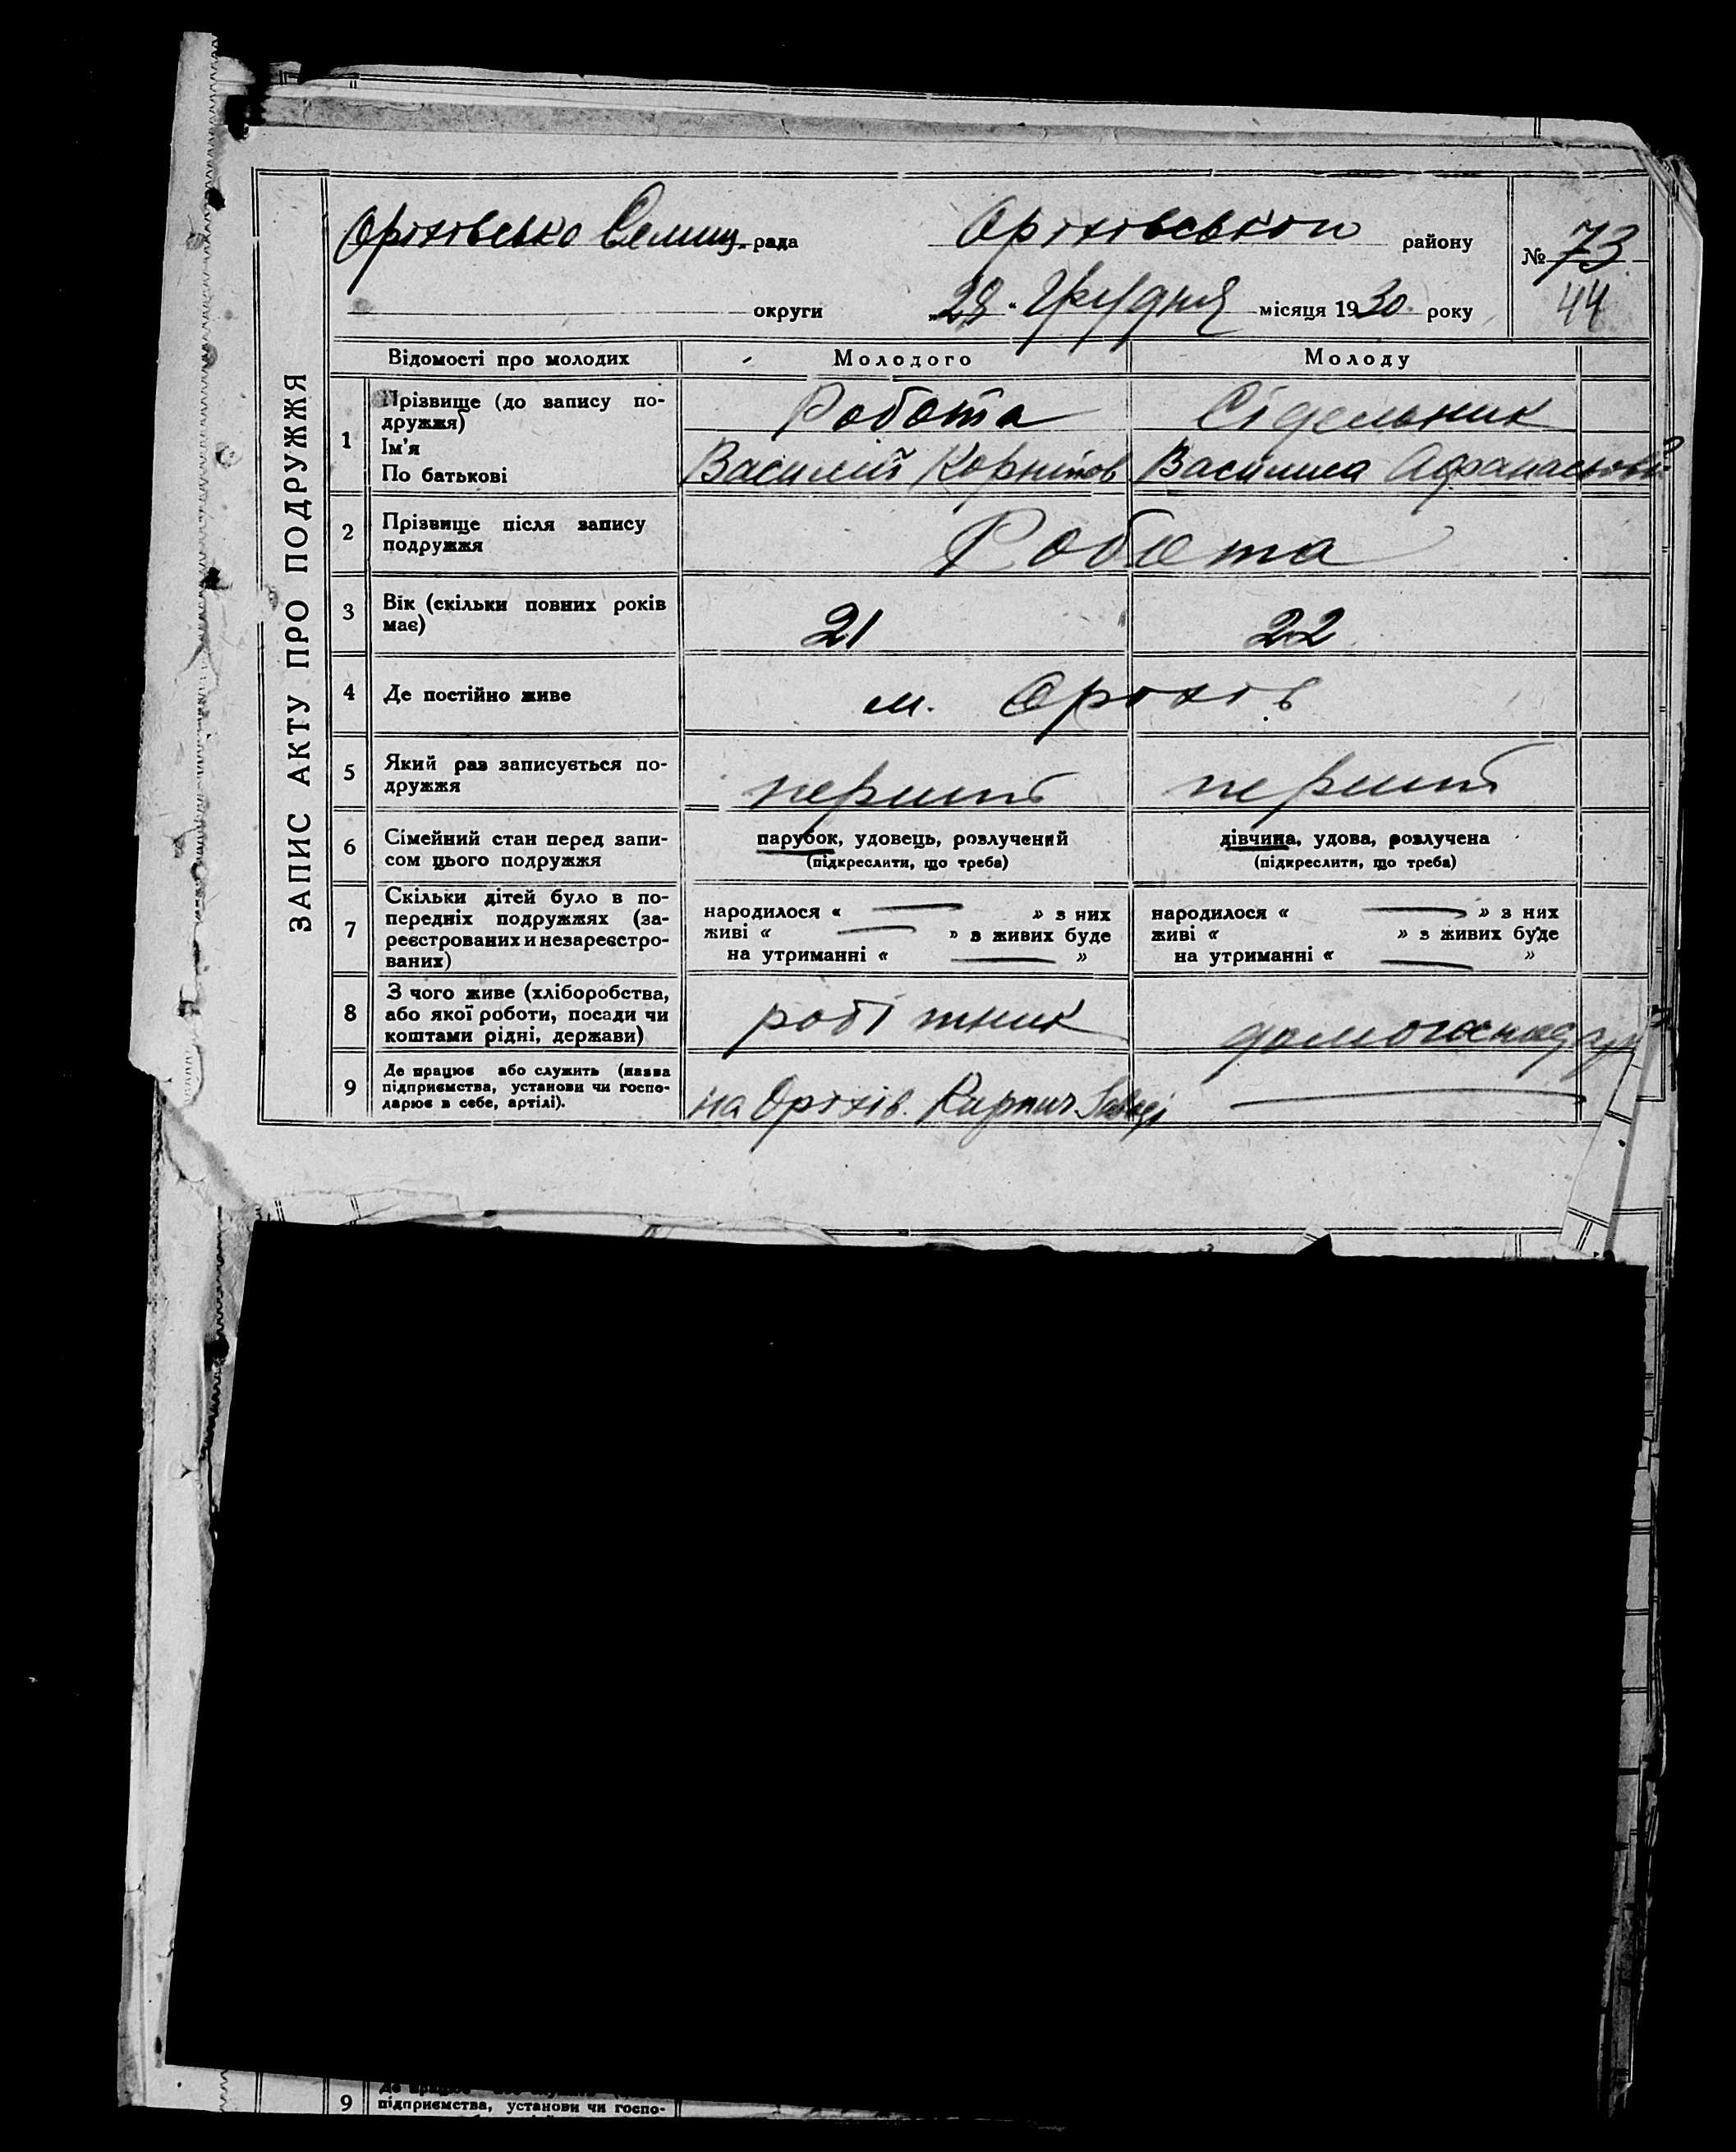 ЗАПИС АКТУ ПРО ПОДРУЖЖЯ
Оріхівсько Селищ. рада Оріхівського району № 73
округи „28“ Грудня місяця 1930 року 44
Відомості про молодих Молодого Молоду
1 Прізвище (до запису по- Робота Сідельник
дружжя)
Ім'я
По батькові Василий Корнійов Василиса Афанасьєв
2 Прізвище після запису Робота
подружжя
3 Вік (скільки повних років 21 22
має)
4 Де постійно живе м. Оріхів
5 Який раз записується по- перший перший
дружжя
6 Сімейний стан перед запи- парубок, удовець, розлучений дівчина, удова, розлучена
сом цього подружжя (підкреслити, що треба) (підкреслити, що треба)
7 Скільки дітей було в по-
передніх подружжях (за- народилося « — » з них народилося « — » з них
реєстрованих и незареєстро- живі « — » з живих буде живі « » з живих буде
ваних) на утриманні « — » на утриманні « — »
8 З чого живе (хліборобства,
або якої роботи, посади чи робітник домогосподар
коштами рідні, держави)
9 Де працює або служить (назва
підприємства, установи чи госпо-
дарює в себе, артілі). на Оріхів. Кирпич Заводі —
9 підприємства, установи чи госпо-